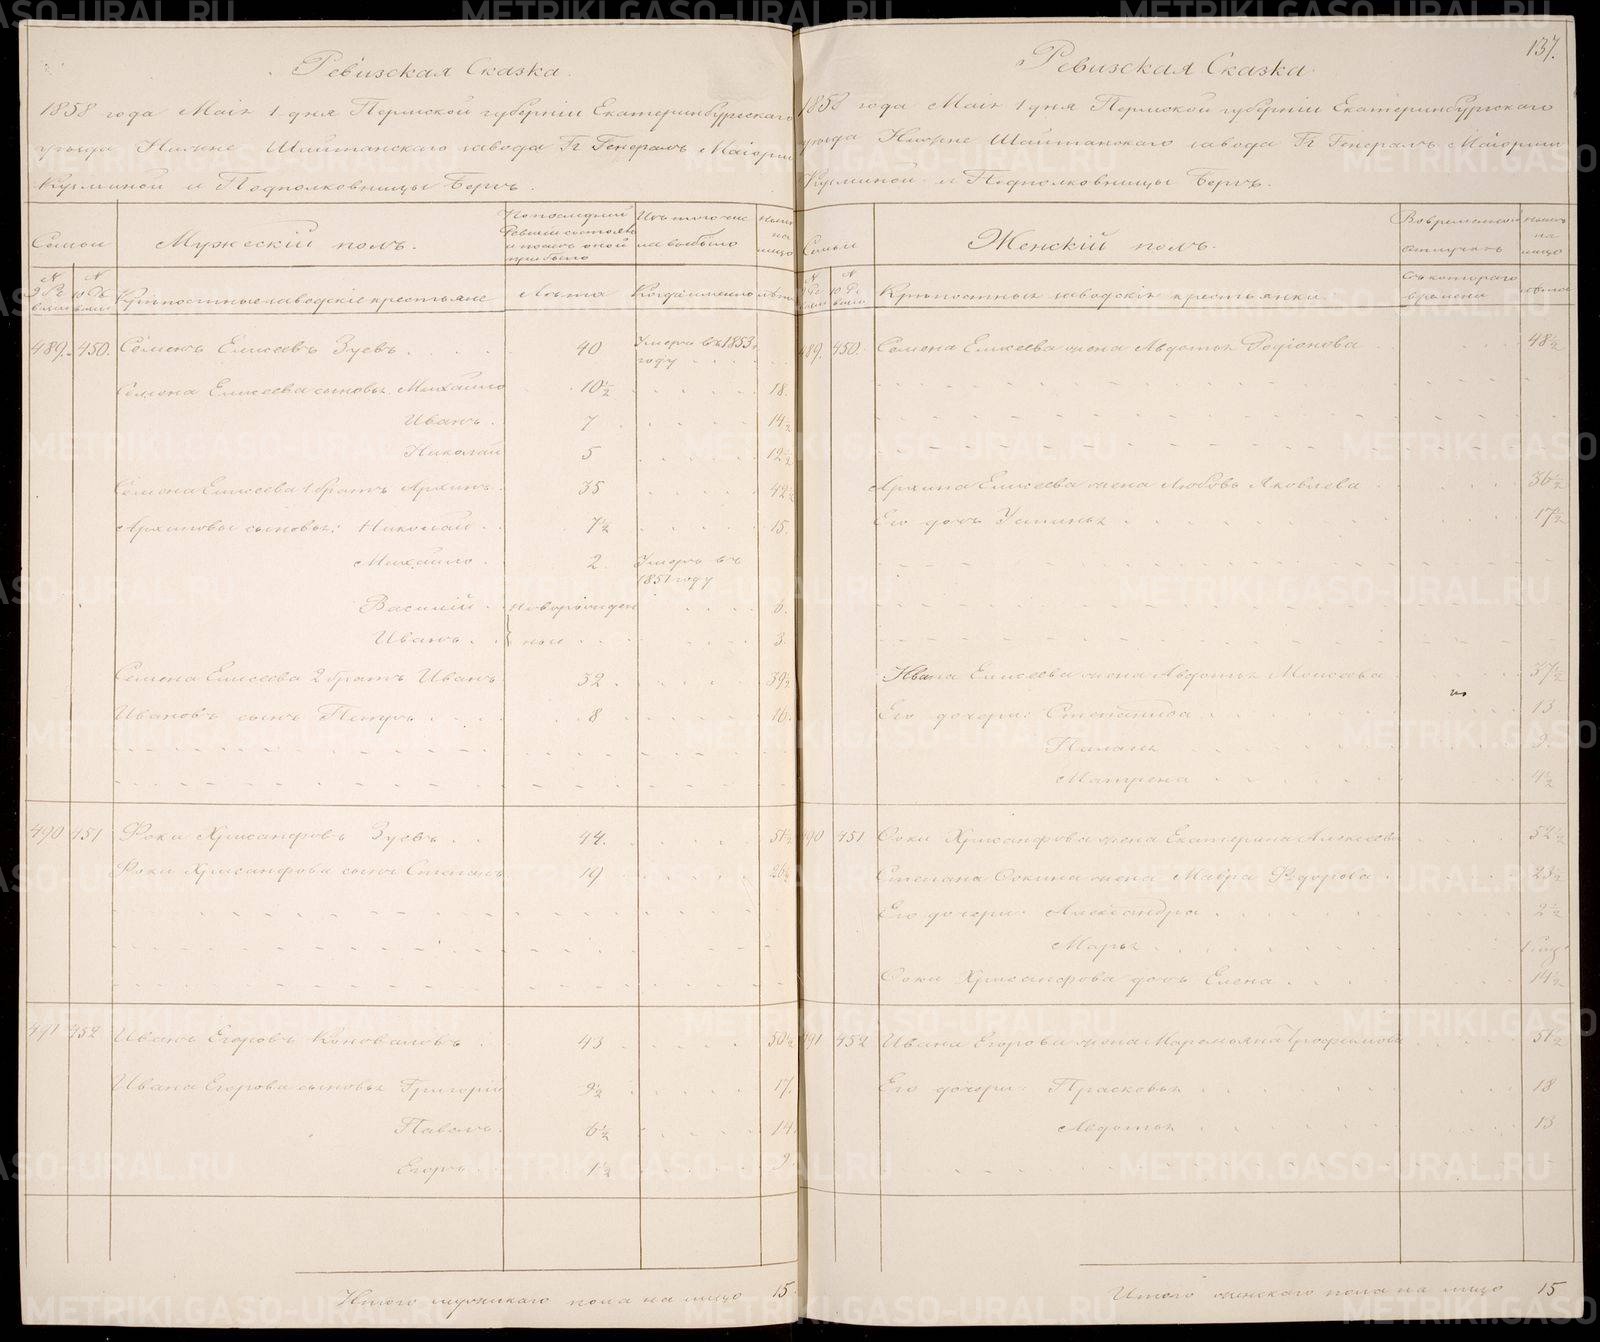 Ревизская Сказка.
1858 года Маія 1 дня Пермской губерніи Екатеринбургскаго
уѣзда Нижне Шайтанскаго завода Гг Генералъ Маіорши
Кузминой и Подполковницы Бергъ.
Семьи
Мужескій полъ.
По последней Ревизіи состояло и послѣ оной прибыло
Изъ того числа выбыло
Нынѣ на лицо
№ 9 Ревизіи
№ 10 Ревизіи
Крѣпостные заводскіе крестьяне
Лѣта
Когда именно
лѣта
489. 450. Семенъ Елисеевъ Зуевъ 40 Умеръ въ 1853 году
Семена Елисеева сыновья Михайло 10½ 18.
Иванъ. 7 14½
Николай 5 12½
Семена Елисеева 1 братъ Архипъ 35 42½
Архиповы сыновья: Николай 7½ 15.
Михайло. 2. Умеръ въ 1851 году
Василій новорожден 6.
Иванъ. ные 3
Семена Елисеева 2 братъ Иванъ 32 39½
Ивановъ сынъ Петръ 8 16.
490 451 Фока Хрисанфовъ Зуевъ 44. 51½
Фоки Хрисанфова сынъ Степанъ 19 26½
491 452 Иванъ Егоровъ Коноваловъ 43 50½
Ивана Егорова сыновья Григорій 9½ 17.
Павелъ. 6½ 14.
Егоръ 1½ 9.
Итого мужескаго пола на лицо 15.
137.
Ревизская Сказка.
1858 года Маія 1 дня Пермской губерніи Екатеринбургскаго
уѣзда Нижне Шайтанскаго завода Гг Генералъ Маіорши
Кузминой и Подполковницы Бергъ.
Семьи
Женскій полъ.
Во временной отлучкѣ
Нынѣ на лицо
№ 9 Ревизіи
№ 10 Ревизіи
Крѣпостныя заводскія крестьянки
Съ котораго времени
лѣта
489. 450. Семена Елисеева жена Авдотья Родіонова 48½
Архипа Елисеева жена Любовь Яковлева 36½
Его дочь Устинья 17½
Ивана Елисеева жена Авдотья Моисеева 37½
Его дочери: Степанида 13
Палагья 9.
Матрена 4½
490 451 Фоки Хрисанфова жена Екатерина Алексеева 52½
Степана Фокина жена Мавра Федорова 23½
Его дочери: Александра 2½
Марья
Фоки Хрисанфова дочь Елена 14½
491 452 Ивана Егорова жена Маремьяна Трофимова 51½
Его дочери: Прасковья 18
Авдотья 13
Итого женскаго пола на лицо 15
METRIKI.GASO-URAL.RU